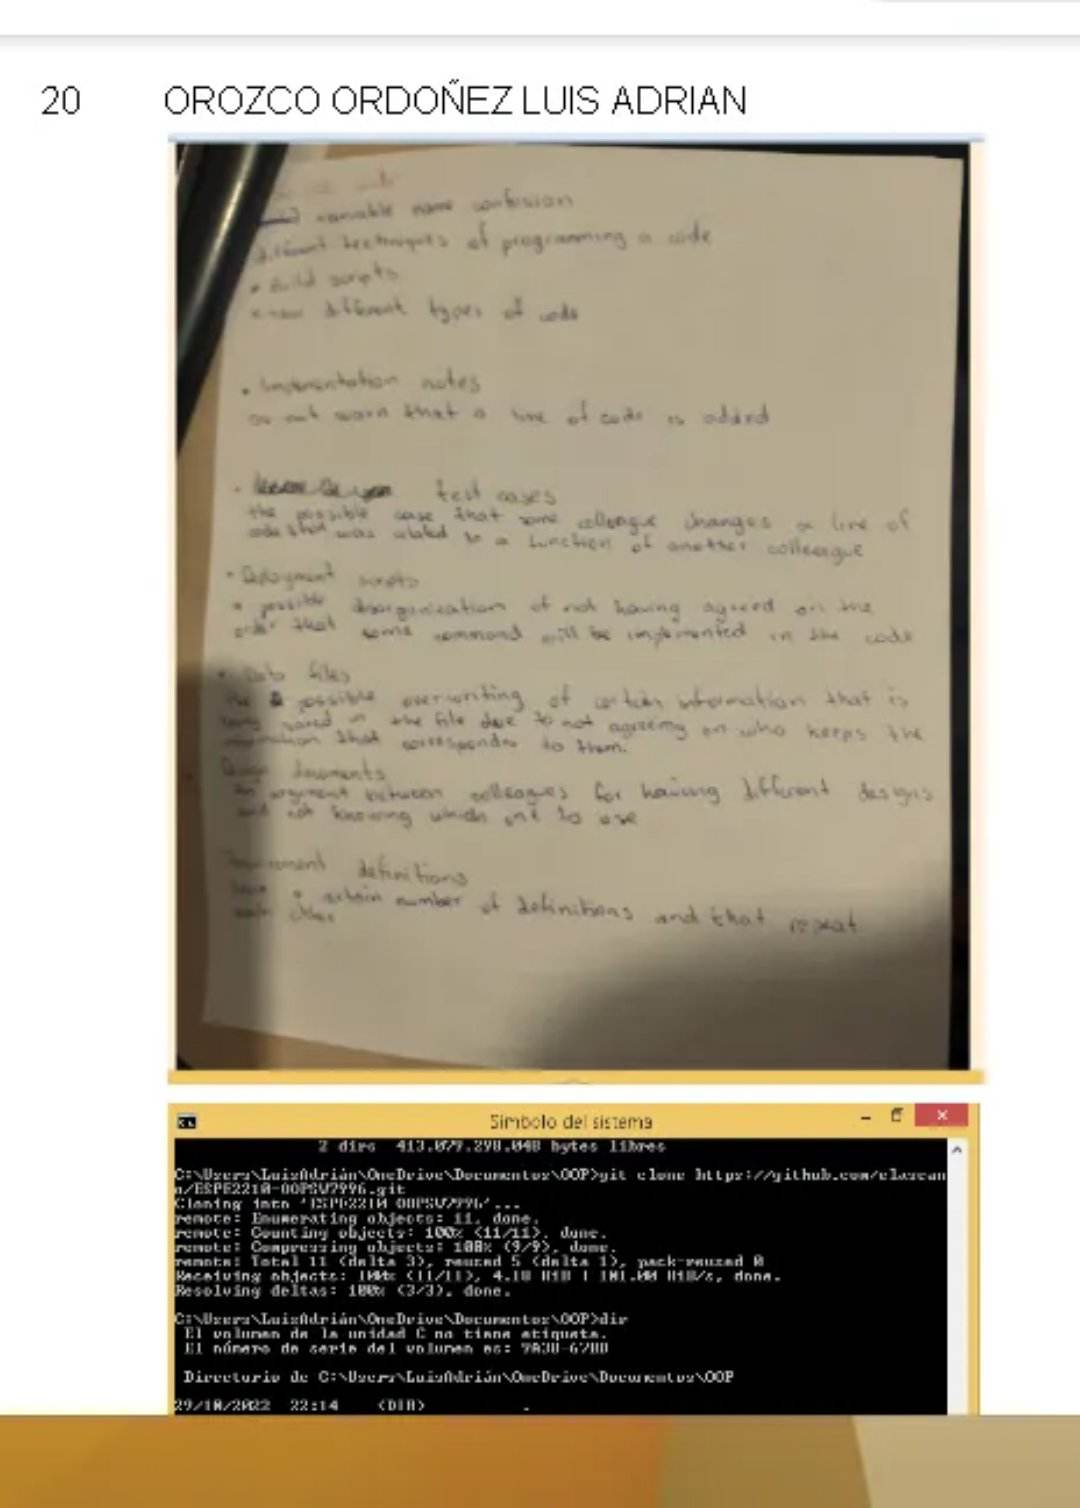 20 OROZCO ORDOÑEZ LUIS ADRIAN
variable name confusion
different techniques of programming a code
• Build scripts
different types of code
• Implementation notes
that a line of code is added
• test cases
the possible case that some colleague changes a line of
code that was related to a function of another colleague
• Deployment scripts
a possible disorganization of not having agreed on the
order that some command will be implemented in the code
files
the possible overwriting of certain information that is
saved in the file due to not agreeing on who keeps the
that corresponds to them.
Design documents
an argument between colleagues for having different designs
and not knowing which one to use
definitions
a certain number of definitions and that repeat
each other
Símbolo del sistema
2 dirs 413.079.298.048 bytes libres
C:\Users\LuisAdrián\OneDrive\Documentos\OOP>git clone https://github.com/elascan
o/ESPE2210-OOPSW7996.git
Cloning into 'ESPE2210-OOPSW7996'...
remote: Enumerating objects: 11, done.
remote: Counting objects: 100% (11/11), done.
remote: Compressing objects: 100% (9/9), done.
remote: Total 11 (delta 3), reused 5 (delta 1), pack-reused 0
Receiving objects: 100% (11/11), 4.10 MiB | 101.00 KiB/s, done.
Resolving deltas: 100% (3/3), done.
C:\Users\LuisAdrián\OneDrive\Documentos\OOP>dir
El volumen de la unidad C no tiene etiqueta.
El número de serie del volumen es:
Directorio de C:\Users\LuisAdrián\OneDrive\Documentos\OOP
29/10/2022 22:14 <DIR> .